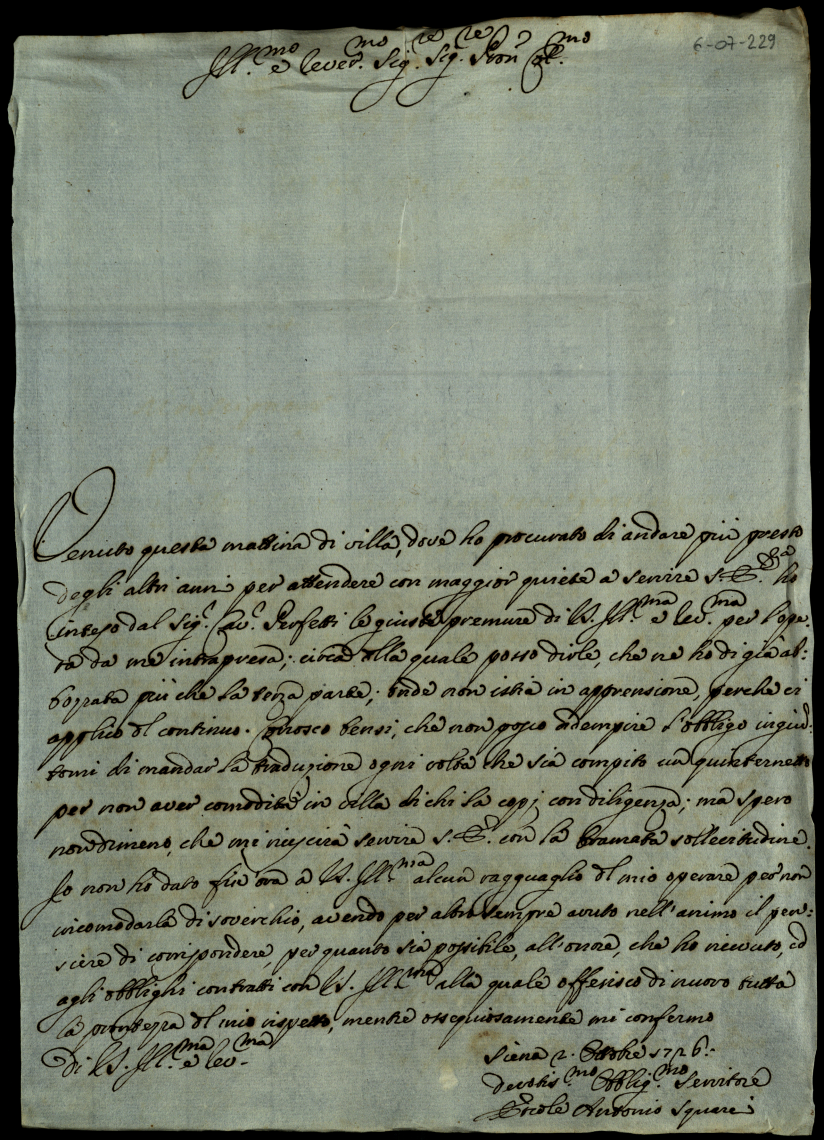 6-07-229
Ill.mo e Rever.mo Sig.re Sig.re Pron. Col.mo
Venuto questa mattina di villa, dove ho procurato di andare più presto
degli altri anni per attendere con maggior quiete a servire S. E. ho
inteso dal Sig. Cav. Perfetti le giuste premure di V. S. Ill.ma e Rev.ma per l'ope-
ra da me intrapresa; circa alla quale posso dirle, che ne ho di già ab-
bozzata più che la terza parte; onde non istia in apprensione, perche ci
applico del continuo. Conosco bensi, che non posso adempire l'obbligo ingiun-
tomi di mandar la traduzione ogni volta che sia compito un quinternetto
per non aver comodità in villa di chi la copj con diligenza; ma spero
nondimeno, che mi riuscirà servire S. E. con la bramata sollecitudine.
Io non ho dato fin ora a V. S. Ill.ma alcun ragguaglio del mio operare per non
incomodarla di soverchio, avendo per altro sempre avuto nell'animo il pen-
siere di corrispondere, per quanto sia possibile, all'onore, che ho ricevuto, ed
agli obblighi contratti con V. S. Ill.ma alla quale offerisco di nuovo tutta
la prontezza del mio rispetto, mentre ossequiosamente mi confermo
di V. S. Ill.ma e Rev.ma
Siena 2. Ottobre 1726.
devotis.mo Obblig.mo Servitore
Ercole Antonio Squarci